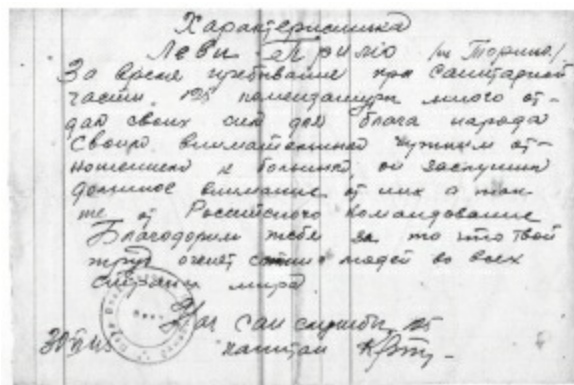 Характеристика
Леви Примо /м Торино/
За время пребывание при санитарной
части 125 комендатуры много от-
дал своих сил для блага народа
Своим внимательным чутким от-
ношением к больным он заслужил
должное внимание от них а так-
же от Российского Командование
Благодорим тебя за то что твой
труд оценят сотни людей во всех
странах мира
Нач сан службы 125
30 VI 45 капитан